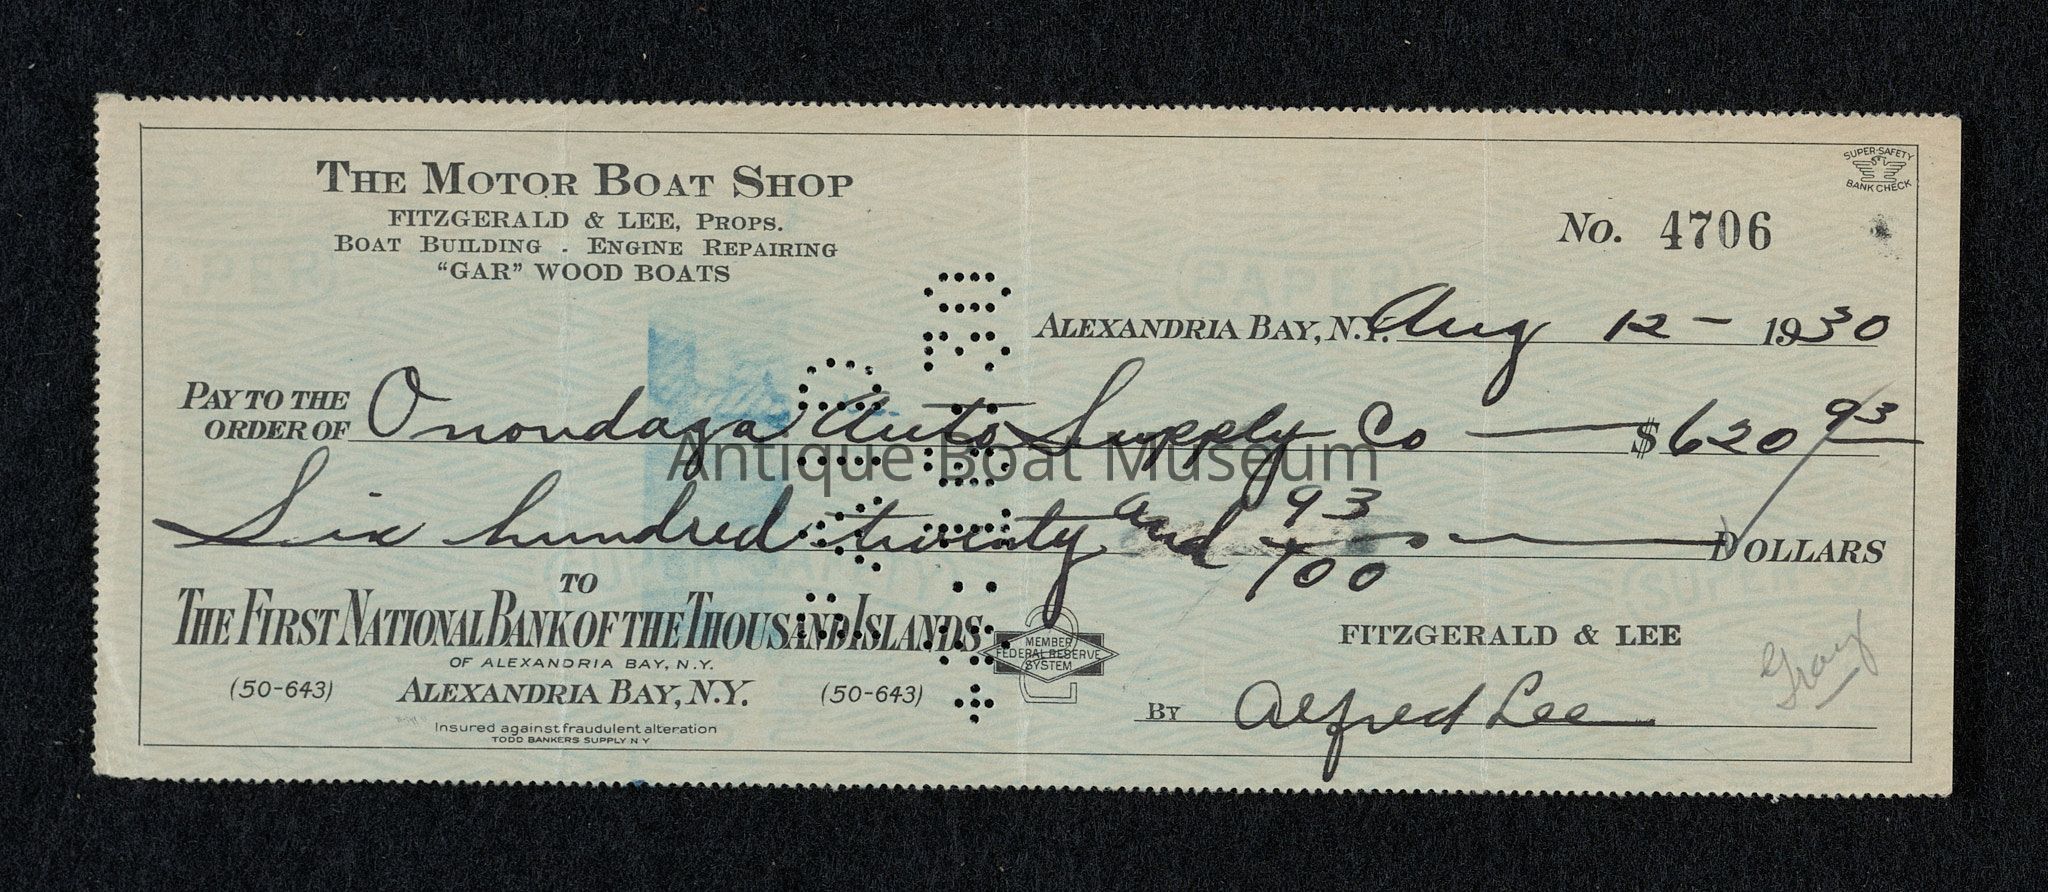 THE MOTOR BOAT SHOP
FITZGERALD & LEE, PROPS.
BOAT BUILDING . ENGINE REPAIRING
"GAR" WOOD BOATS
SUPER-SAFETY
BANK CHECK
No. 4706
ALEXANDRIA BAY, N.Y. Aug 12 - 1930
PAY TO THE
ORDER OF Onondaga Auto Supply Co $620 93
Antique Boat Museum
Six hundred twenty and 93/100 DOLLARS
TO
THE FIRST NATIONAL BANK OF THE THOUSAND ISLANDS
OF ALEXANDRIA BAY, N.Y.
(50-643) ALEXANDRIA BAY, N.Y. (50-643)
Insured against fraudulent alteration
TODD BANKERS SUPPLY N Y
MEMBER
FEDERAL RESERVE
SYSTEM
FITZGERALD & LEE
Gray
BY Alfred Lee